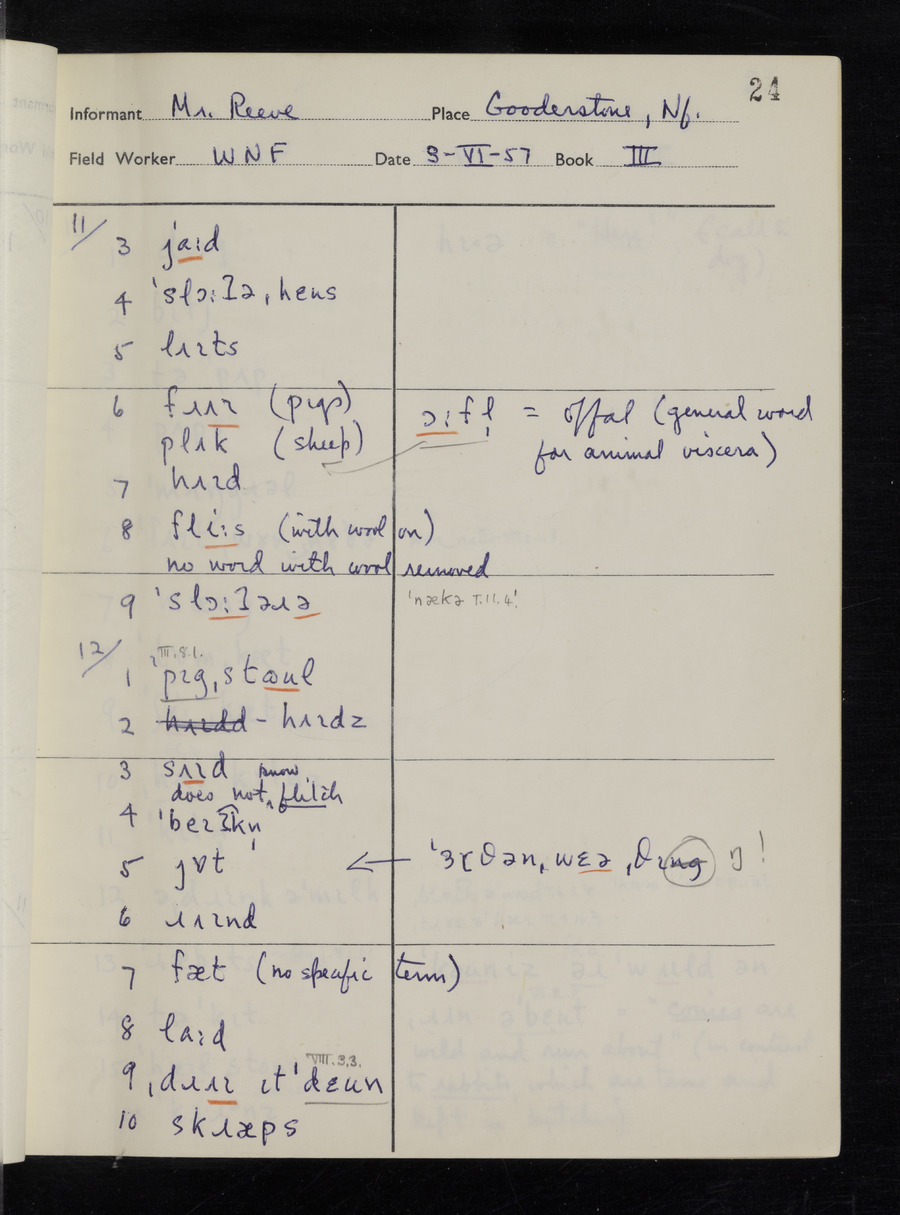 24
Informant Mr. Reeve Place Gooderstone, Nf.
Field Worker WNF Date 9-VI-57 Book III
11/
3 jaːd
4 ˈslɔːʔə, hɛus
5 lʌɪts
6 fɹaɪ (pɪgs)
plʌk (sheep)
ɔːfl̩ = offal (general word
for animal viscera)
7 hʌɪd
8 fliːs (with wool on)
no word with wool removed
9 ˈslɔːʔəɹə
'nækə T.11.4!
12/
III.8.1.
1 ˈpɪg,stɷul
2 hʌɪdz
3 sʌɪd
does not know flitch
4 ˈbeɪʔkn̩
5 jɒt
ˈɜːðən,wɛə
6 ɹʌɪnd
7 fæt (no specific term)
8 laːd
VIII.3.3.
9 ˌdɹʌɪ ɪt ˈdɛun
10 skɹæps